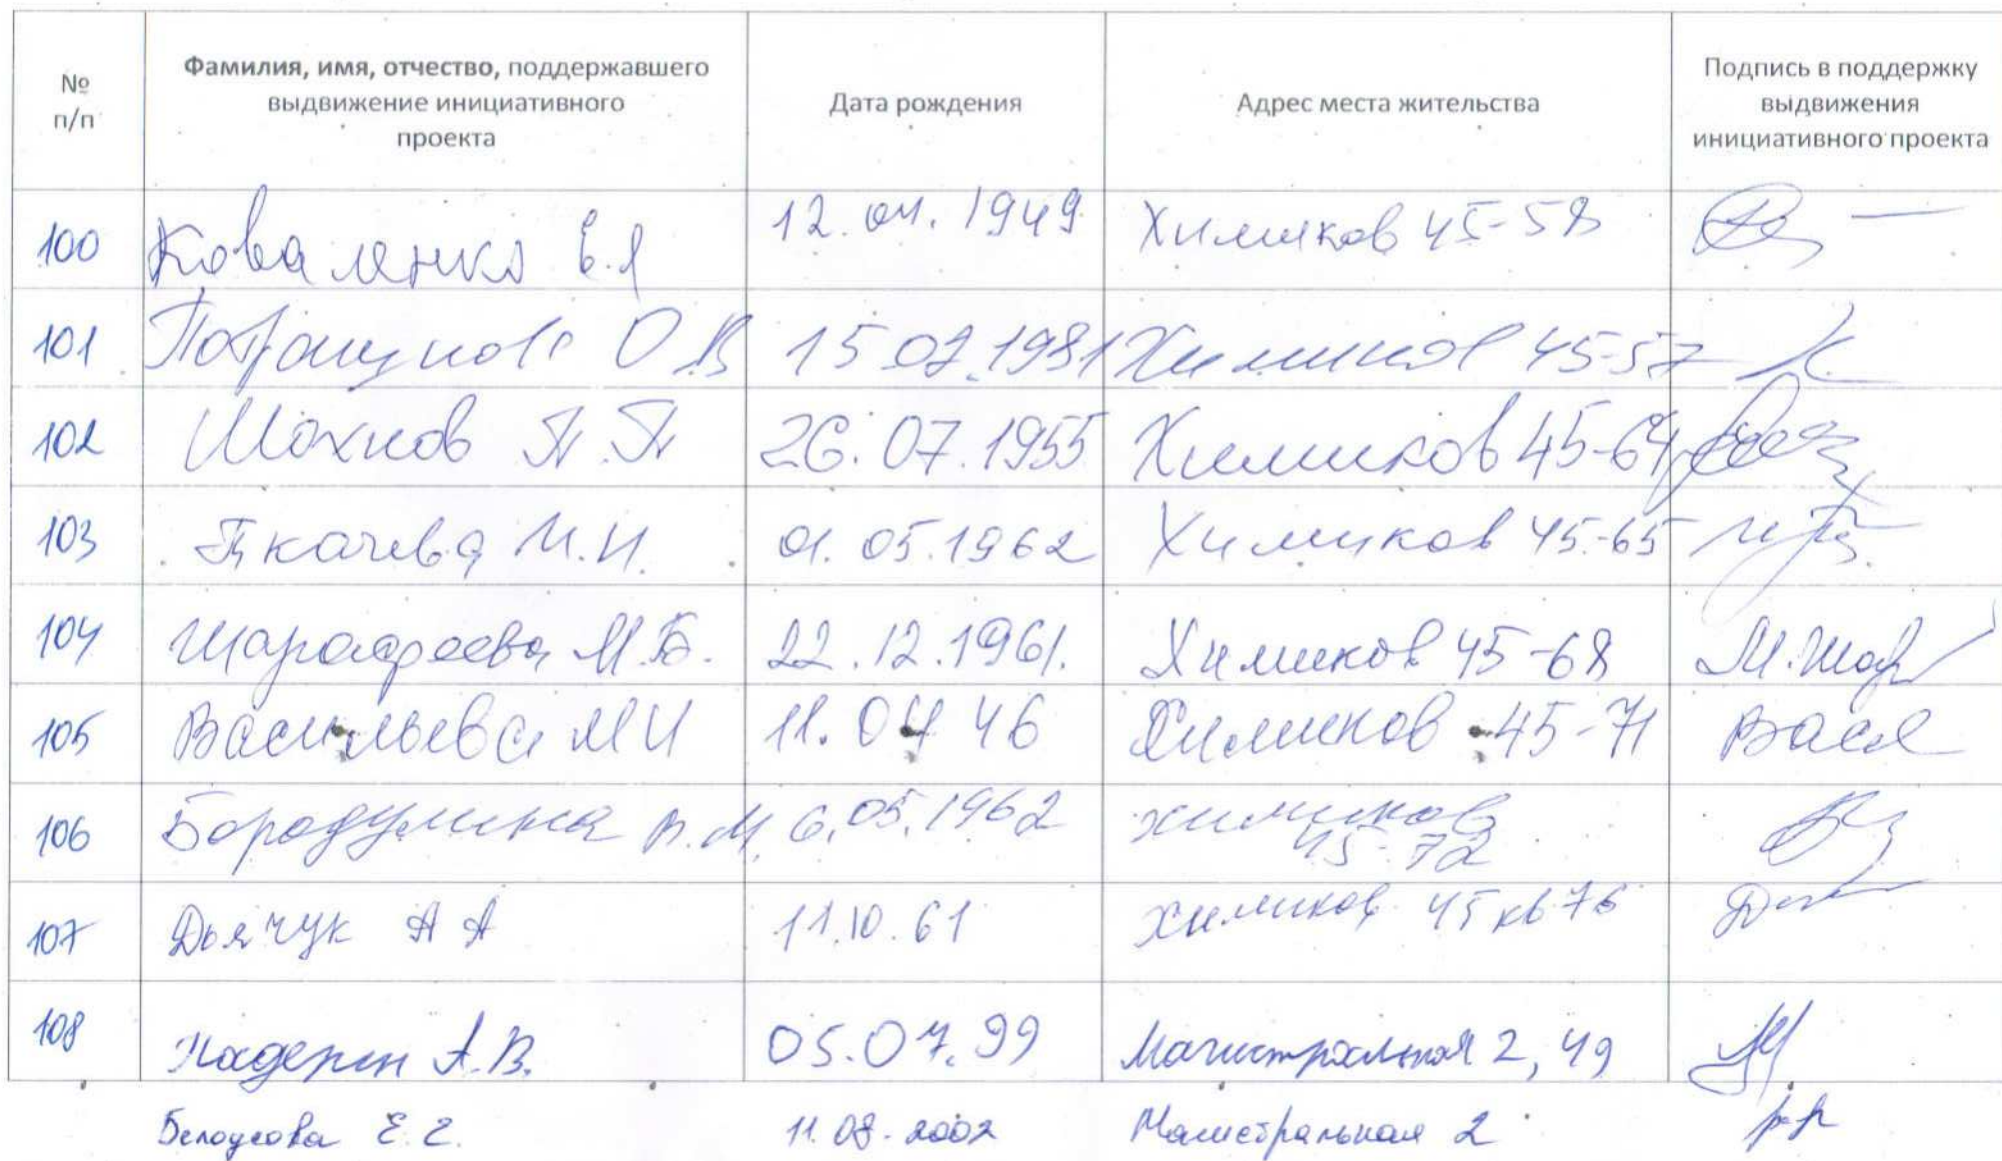 № п/п
Фамилия, имя, отчество, поддержавшего выдвижение инициативного проекта
Дата рождения
Адрес места жительства
Подпись в поддержку выдвижения инициативного проекта
100 Коваленко Е.Я 12.04.1949 Химиков 45-58
101 О В 15 07.1981 Химиков 45-57
102 Мохнов П.П 26.07.1955 Химиков 45-64
103 Ткачева И.И. 01.05.1962 Химиков 45-65
104 Шарафеева М.Б. 22.12.1961. Химиков 45-68 М.Шар
105 Васильева М И 11.04 46 Химиков 45-71 Вася
106 Бородулина В.М. 6.05.1962 Химиков 45-72
107 Дьячук А А 11.10.61 Химиков 45 кв 76
108 А.В. 05.07.99 Магистральная 2, 49
Белоусова Е.Г. 11.08.2002 Магистральная 2